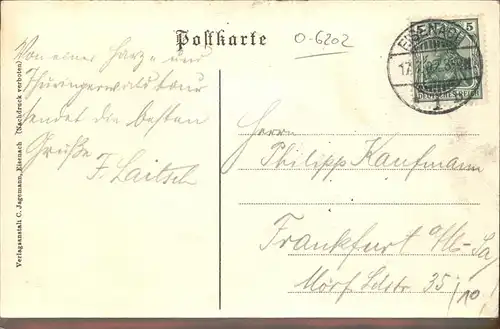 Postkarte
O-6202
EISENACH
5
17.
1
Von einer Harz- und
Thüringerwaldtour
sendet die besten
Grüße
F. Laitsch
Herrn
Philipp Kaufmann
Frankfurt a/M-Sa
35 (10
Verlagsanstalt C. Jagemann, Eisenach (Nachdruck verboten)